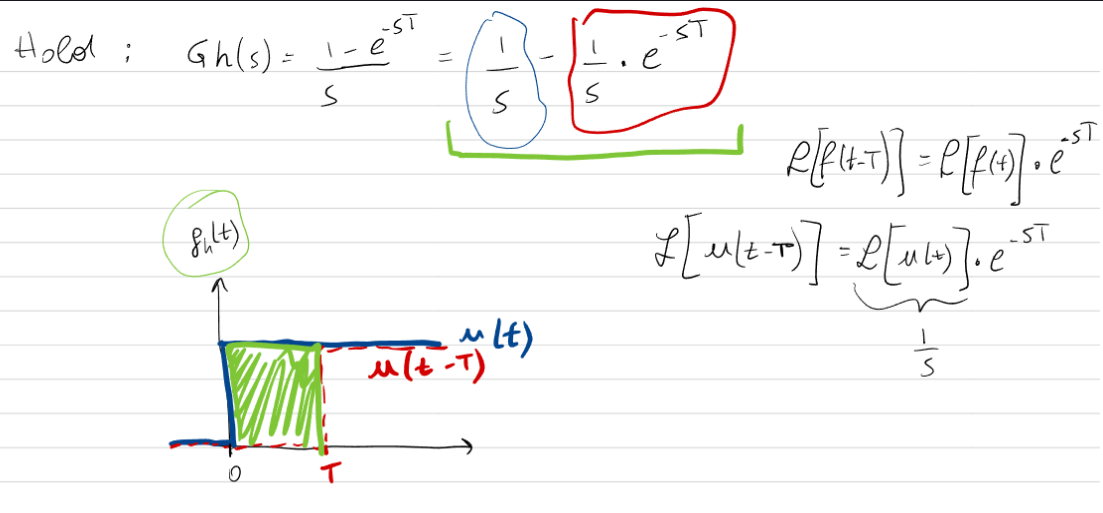 Hold : Gh(s) = (1 - e^{-sT})/s = 1/s - 1/s · e^{-sT}
L[f(t-T)] = L[f(t)] · e^{-sT}
L[u(t-T)] = L[u(t)] · e^{-sT}
1/s
g_h(t)
u(t)
u(t-T)
0
T